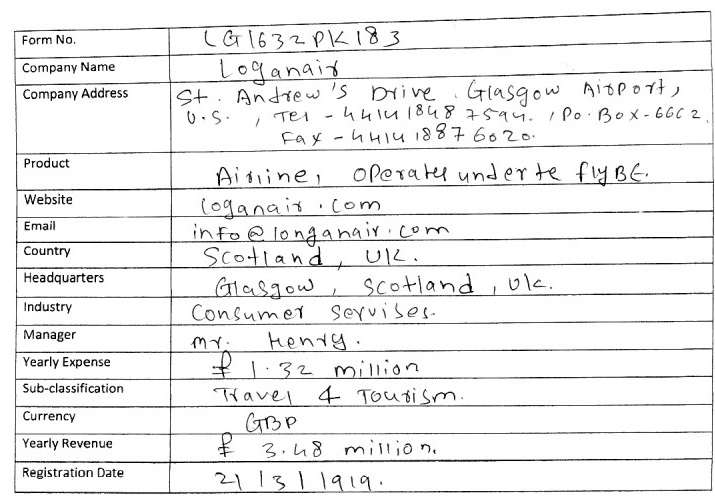 Form No. LG1632PK183
Company Name Loganair
Company Address St. Andrew's Drive, Glasgow Airport,
U.S., Tel - 44141 1848 7594. , Po. Box - 6662
Fax - 44141 18876020.
Product Airline, Operates under te flyBE.
Website loganair.com
Email info@longanair.com
Country Scotland, UK.
Headquarters Glasgow, Scotland, Uk.
Industry Consumer Servises.
Manager Mr. Henry.
Yearly Expense £ 1.32 million
Sub-classification Travel & Tourism.
Currency GBP
Yearly Revenue £ 3.48 million.
Registration Date 21/3/1919.